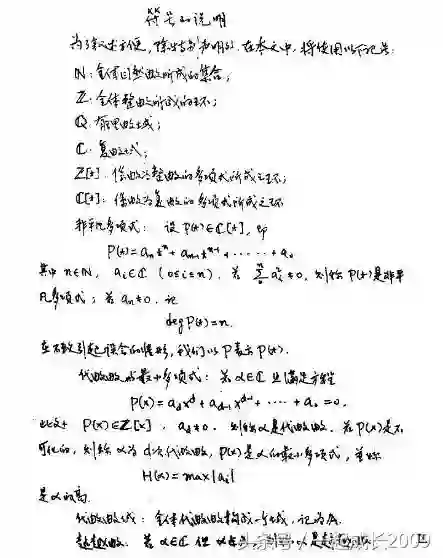 符号和说明
为了叙述方便，除特别声明外，在本文中，将使用以下记号：
N：全体自然数所成的集合；
Z：全体整数所成的环；
Q：有理数域；
C：复数域；
Z[t]：系数为整数的多项式所成之环；
C[t]：系数为复数的多项式所成之环
非平凡多项式：设 P(t)∈C[t]，即
P(t)=aₙtⁿ+aₙ₋₁tⁿ⁻¹+……+a₀
其中 n∈N，aᵢ∈C（0≤i≤n）。若 ≠0，则称 P(t)是非平
凡多项式；若 aₙ≠0，记
deg P(t)=n.
在不致引起误会的情形，我们以P表示P(t).
代数数的最小多项式：若α∈C且满足方程
P(x)=a_d x^d+a_{d-1}x^{d-1}+……+a₀=0,
此处 P(x)∈Z[x]，a_d≠0. 则称α是代数数。若P(x)是不
可化的，则称α为d次代数数，P(x)是α的最小多项式，并称
H(α)=max|aᵢ|
是α的高.
代数数域：全体代数数构成一个域，记为A.
超越数：若α∈C但
头条 成长2009